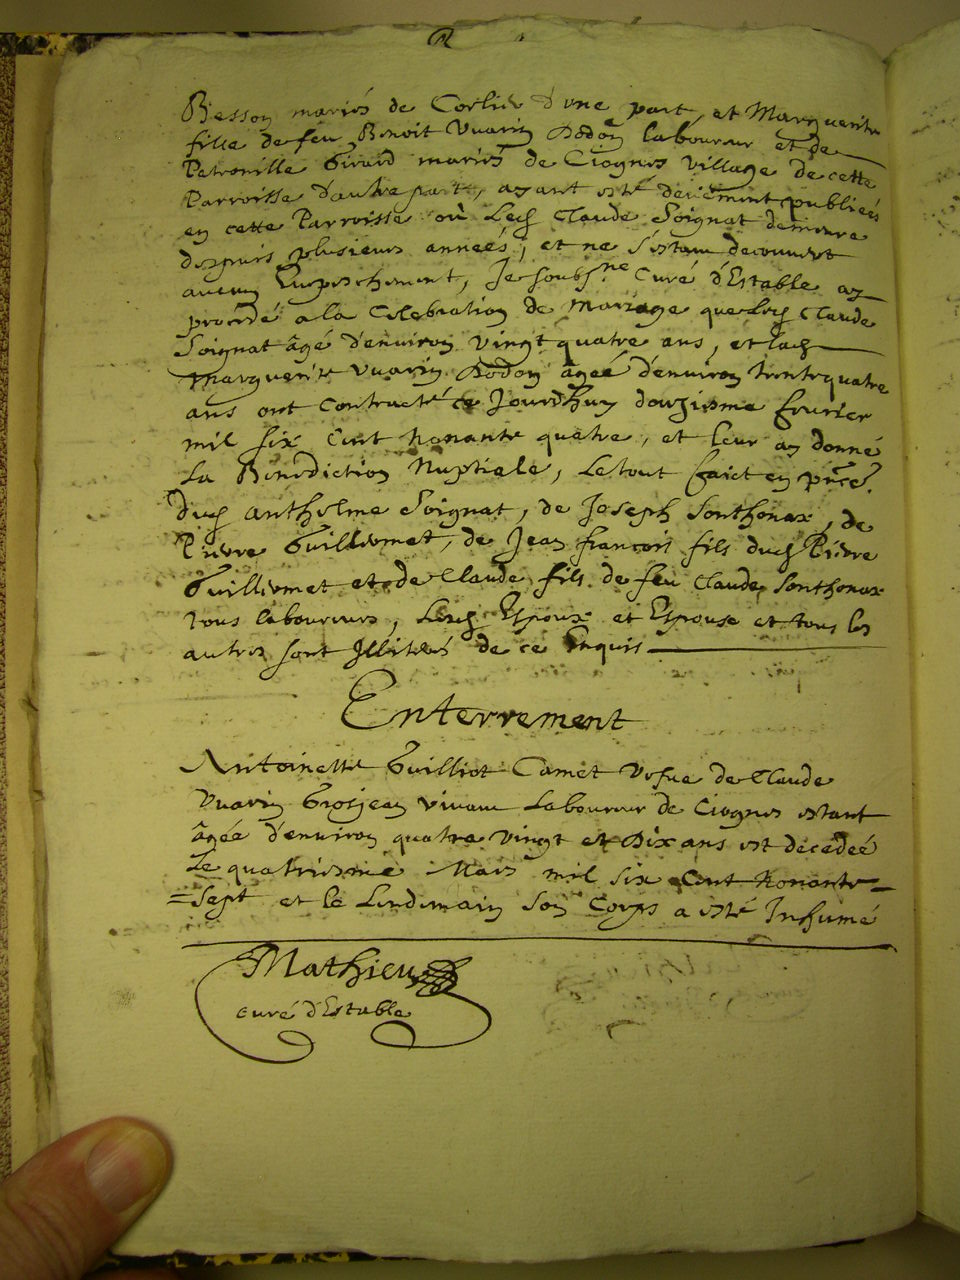 Besson mariés de Corlier d'une part, et Marguerite
fille de feu Benoit Vuarin Dodon laboureur et de
Petronille Girard mariés de Ciognes village de cette
Parroisse d'autre part, ayant esté deüement publiées
en cette Parroisse où Led Claude Soignat demeure
despuis plusieurs années, et ne s'estant decouvert
aucun Empeschement, Je soubsne Curé d'Estable ay
procedé a la Celebration de Mariage que Led Claude
Soignat âgé d'environ vingt quatre ans, et lad
Marguerite Vuarin Dodon âgée d'environ trente quatre
ans ont contracté ce Jourdhuy douziesme fevrier
mil six Cent Nonante quatre, et leur ay donné
La Benediction Nuptiale, Le tout faict en pnce
dud Anthelme Soignat, de Joseph Sonthonax, de
Pierre Guillermet, de Jean francois fils dud Pierre
Guillermet et de Claude fils de feu Claude Sonthonax
tous laboureurs, Lesd Espoux et Espouse et tous les
autres sont Illiterés de ce Enquis
Enterrement
Antoinette Guilliot Camet Vefue de Claude
Vuarin Grosjean vivant Laboureur de Ciognes estant
âgée d'environ quatre vingt et Dix ans est decedeé
Le quatriesme Mars mil six Cent Nonante=
=sept et le Lendemain son Corps a esté Inhumé
Mathieu
curé d'Estable